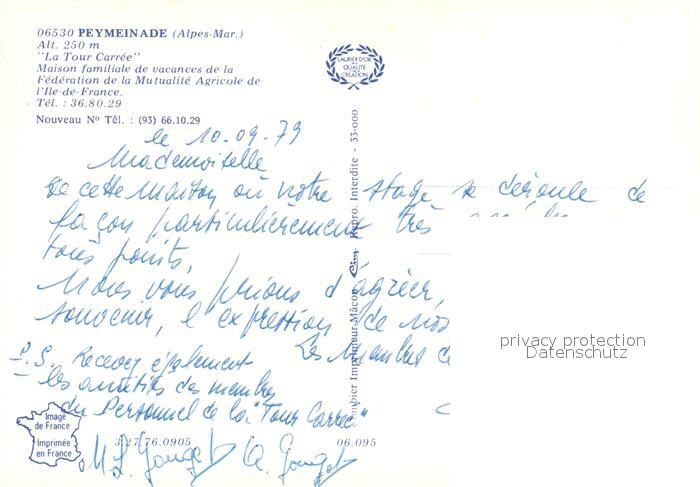 06530 PEYMEINADE (Alpes-Mar.)
Alt. 250 m
"La Tour Carrée"
Maison familiale de vacances de la
Fédération de la Mutualité Agricole de
l'Ile-de-France.
Tél. : 36.80.29
Nouveau Nº Tél. : (93) 66.10.29
LAURIER D'OR
DE
QUALITÉ
CRÉATION
le 10.09.79
Mademoiselle
De cette maison où notre stage se déroule de
façon particulièrement très
tous points,
Nous vous prions d'agréer,
souvenir, l'expression de nos
Les Membres d
P.S. Recevez également
les amitiés des membres
du Personnel de la "Tour Carrée"
Combier Imprimeur Mâcon Cim Repro. Interdite - 33-000
privacy protection
Datenschutz
Image
de France
Imprimée
en France
3.27.76.0905
06.095